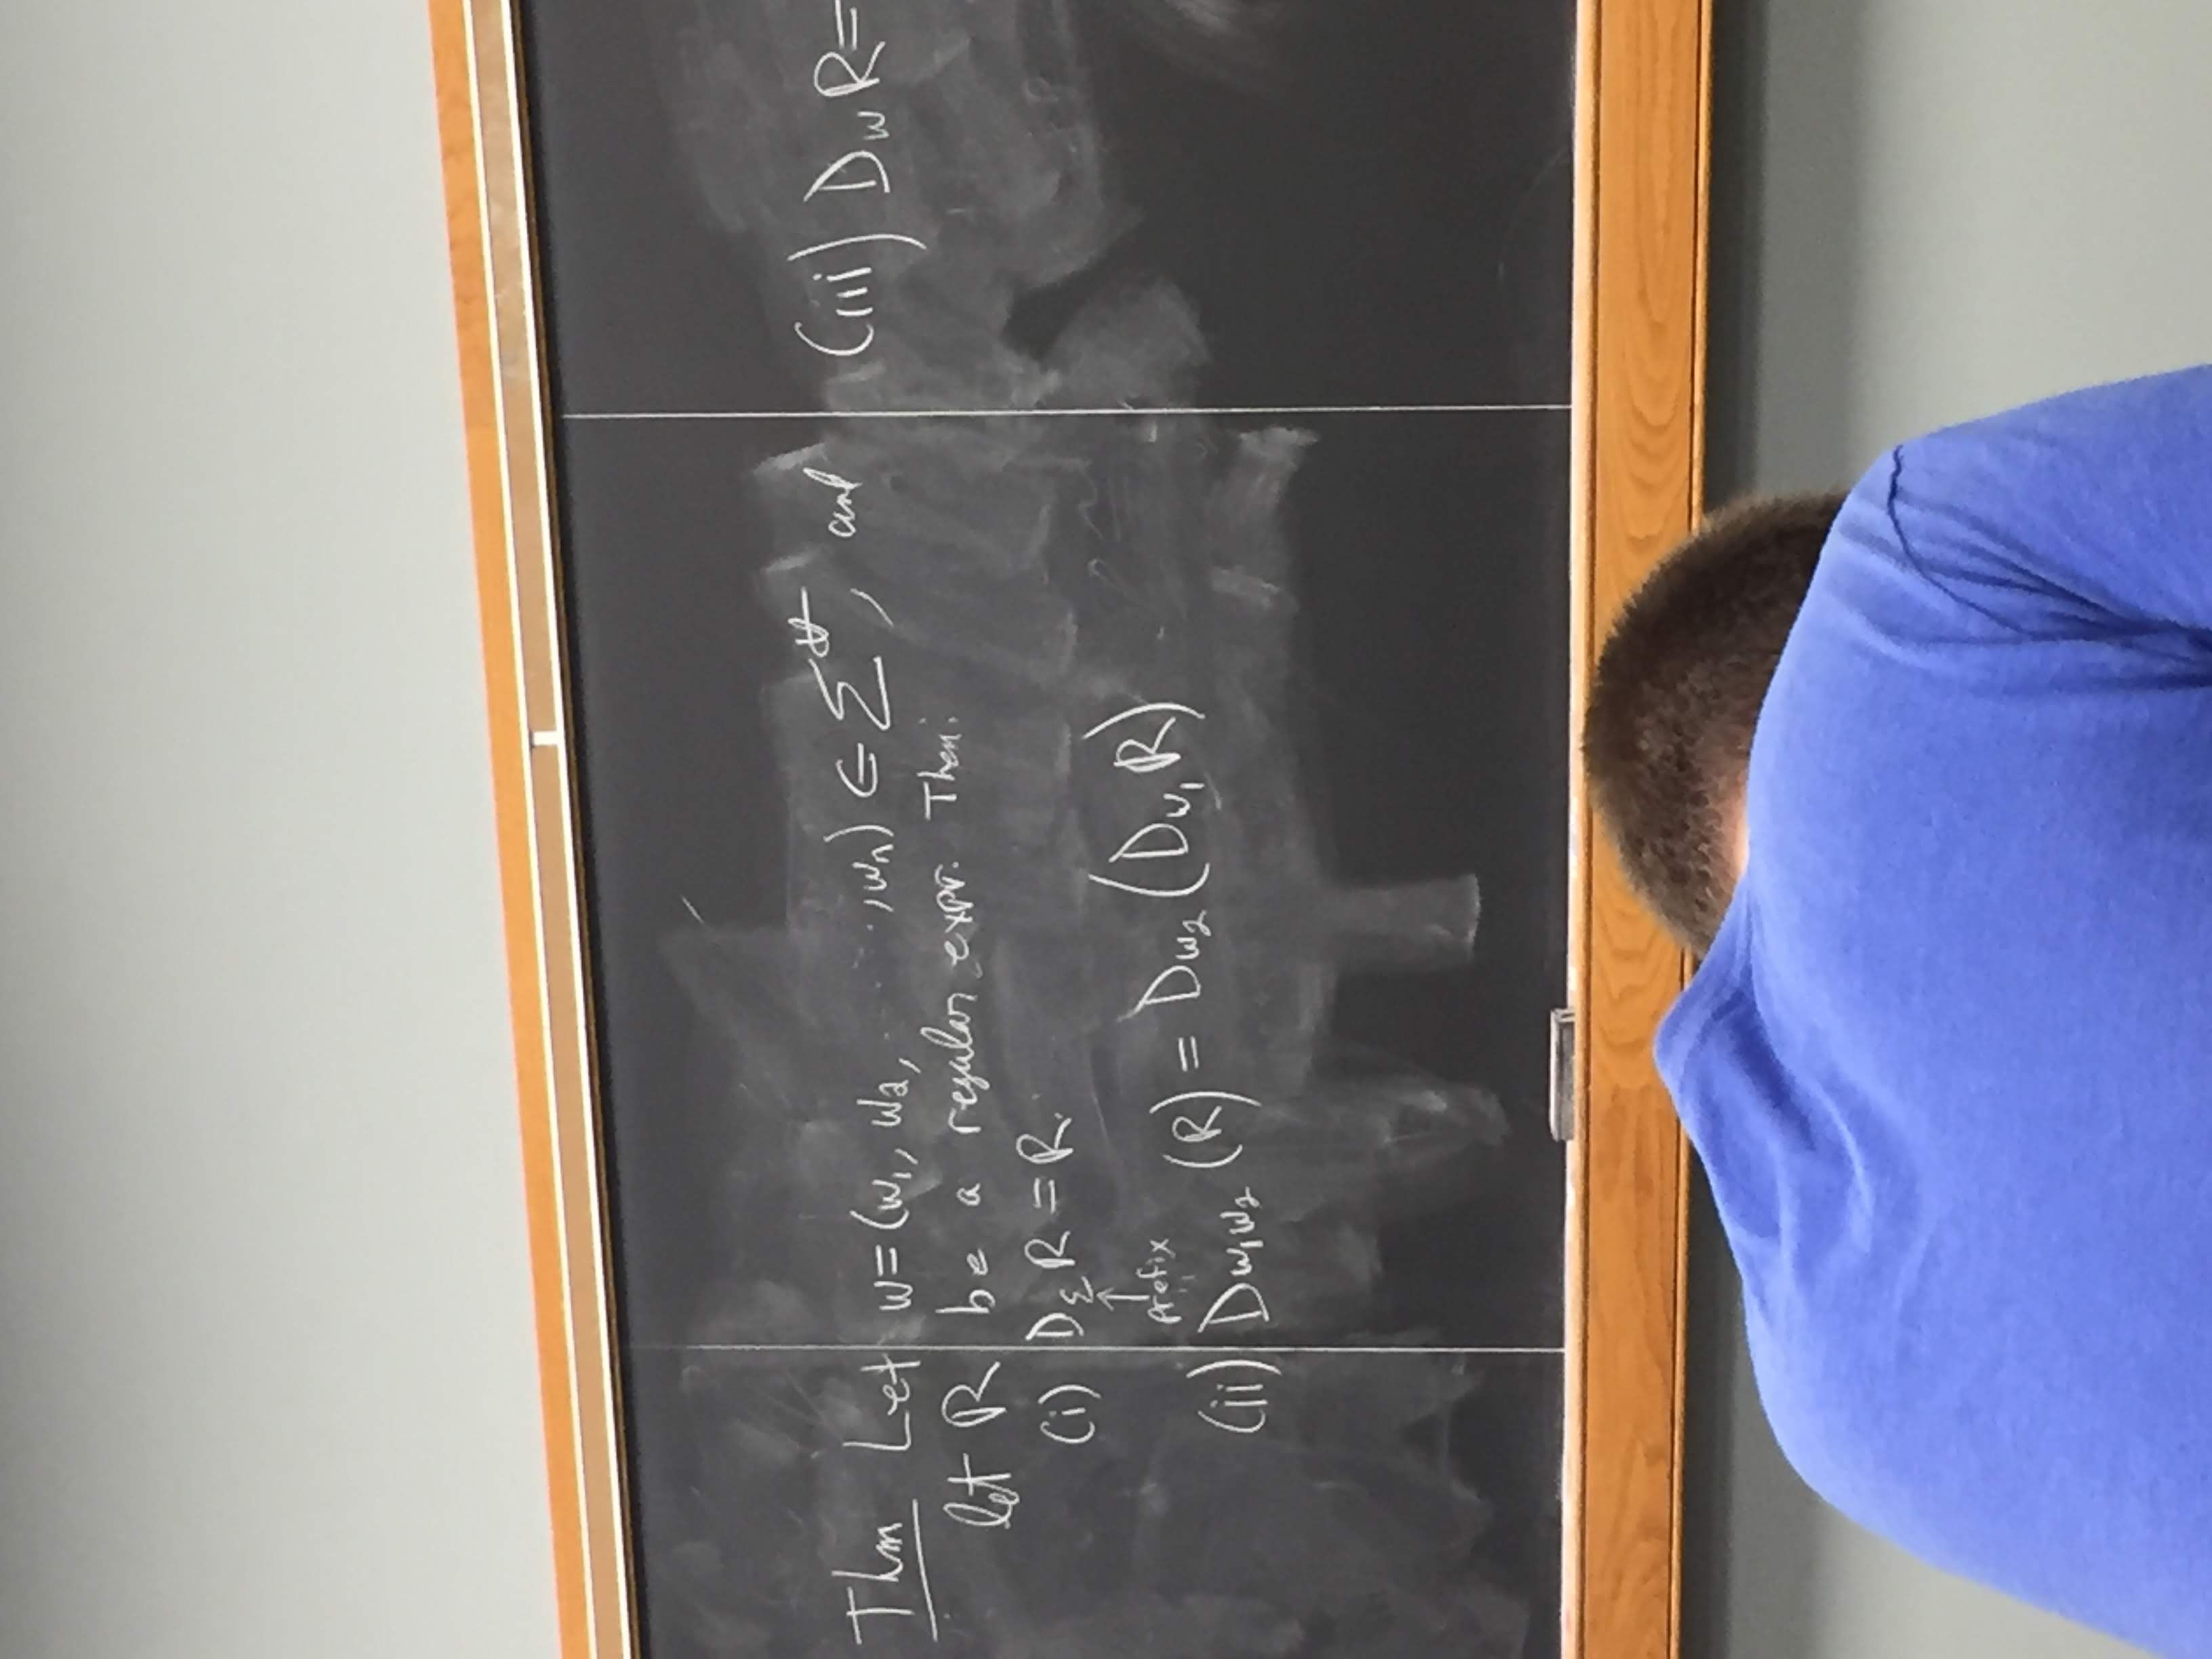 Thm Let w=(w₁, w₂, ,wₙ) ∈ Σ*, and
let R be a regular expr. Then:
(i) D_ε R = R.
↑
prefix
(ii) D_w₁w₂ (R) = D_w₂ (D_w₁ R)
(iii) D_w R =